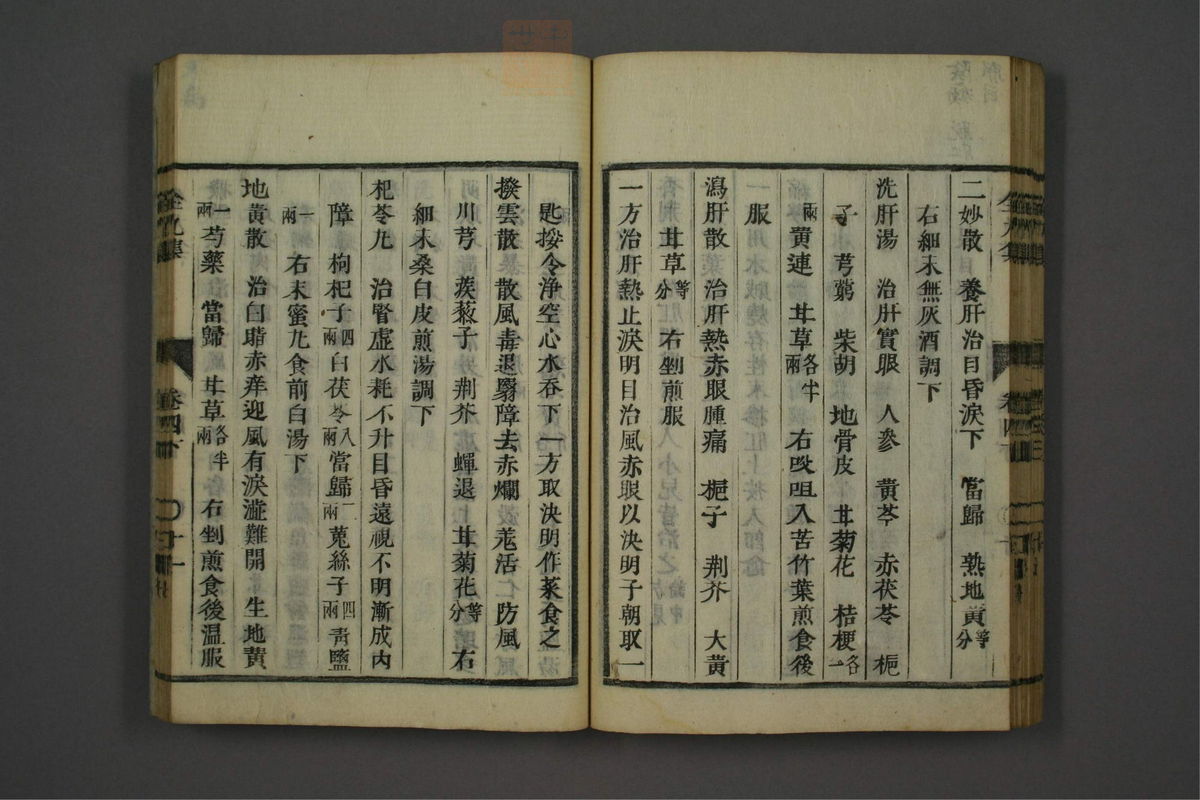 二妙散　養肝治目昏淚下　當歸　熟地黄等分
右細末無灰酒調下
洗肝湯　治肝實眼　人參　黄芩　赤茯苓　梔
子　芎藭　柴胡　地骨皮　甘菊花　桔梗各一
兩黄連　甘草各半兩　右㕮咀入苦竹葉煎食後
服
瀉肝散　治肝熱赤眼腫痛　梔子　荆芥　大黄
甘草等分　右剉煎服
一方治肝熱止淚明目治風赤眼以決明子朝取一
匙挼令淨空心水吞下一方取決明作菜食之
撥雲散　散風毒退翳障去赤爛　羌活　防風
川芎　蒺藜子　荆芥　蟬退　甘菊花等分　右
細末桑白皮煎湯調下
杞苓丸　治腎虛水耗不升目昏遠視不明漸成内
障　枸杞子四兩白茯苓八兩當歸二兩菟絲子四兩青鹽
一兩　右末蜜丸食前白湯下
地黄散　治白睛赤痒迎風有淚澁難開　生地黄
一兩芍藥　當歸　甘草各半兩　右剉煎食後温服
卷四下
十一